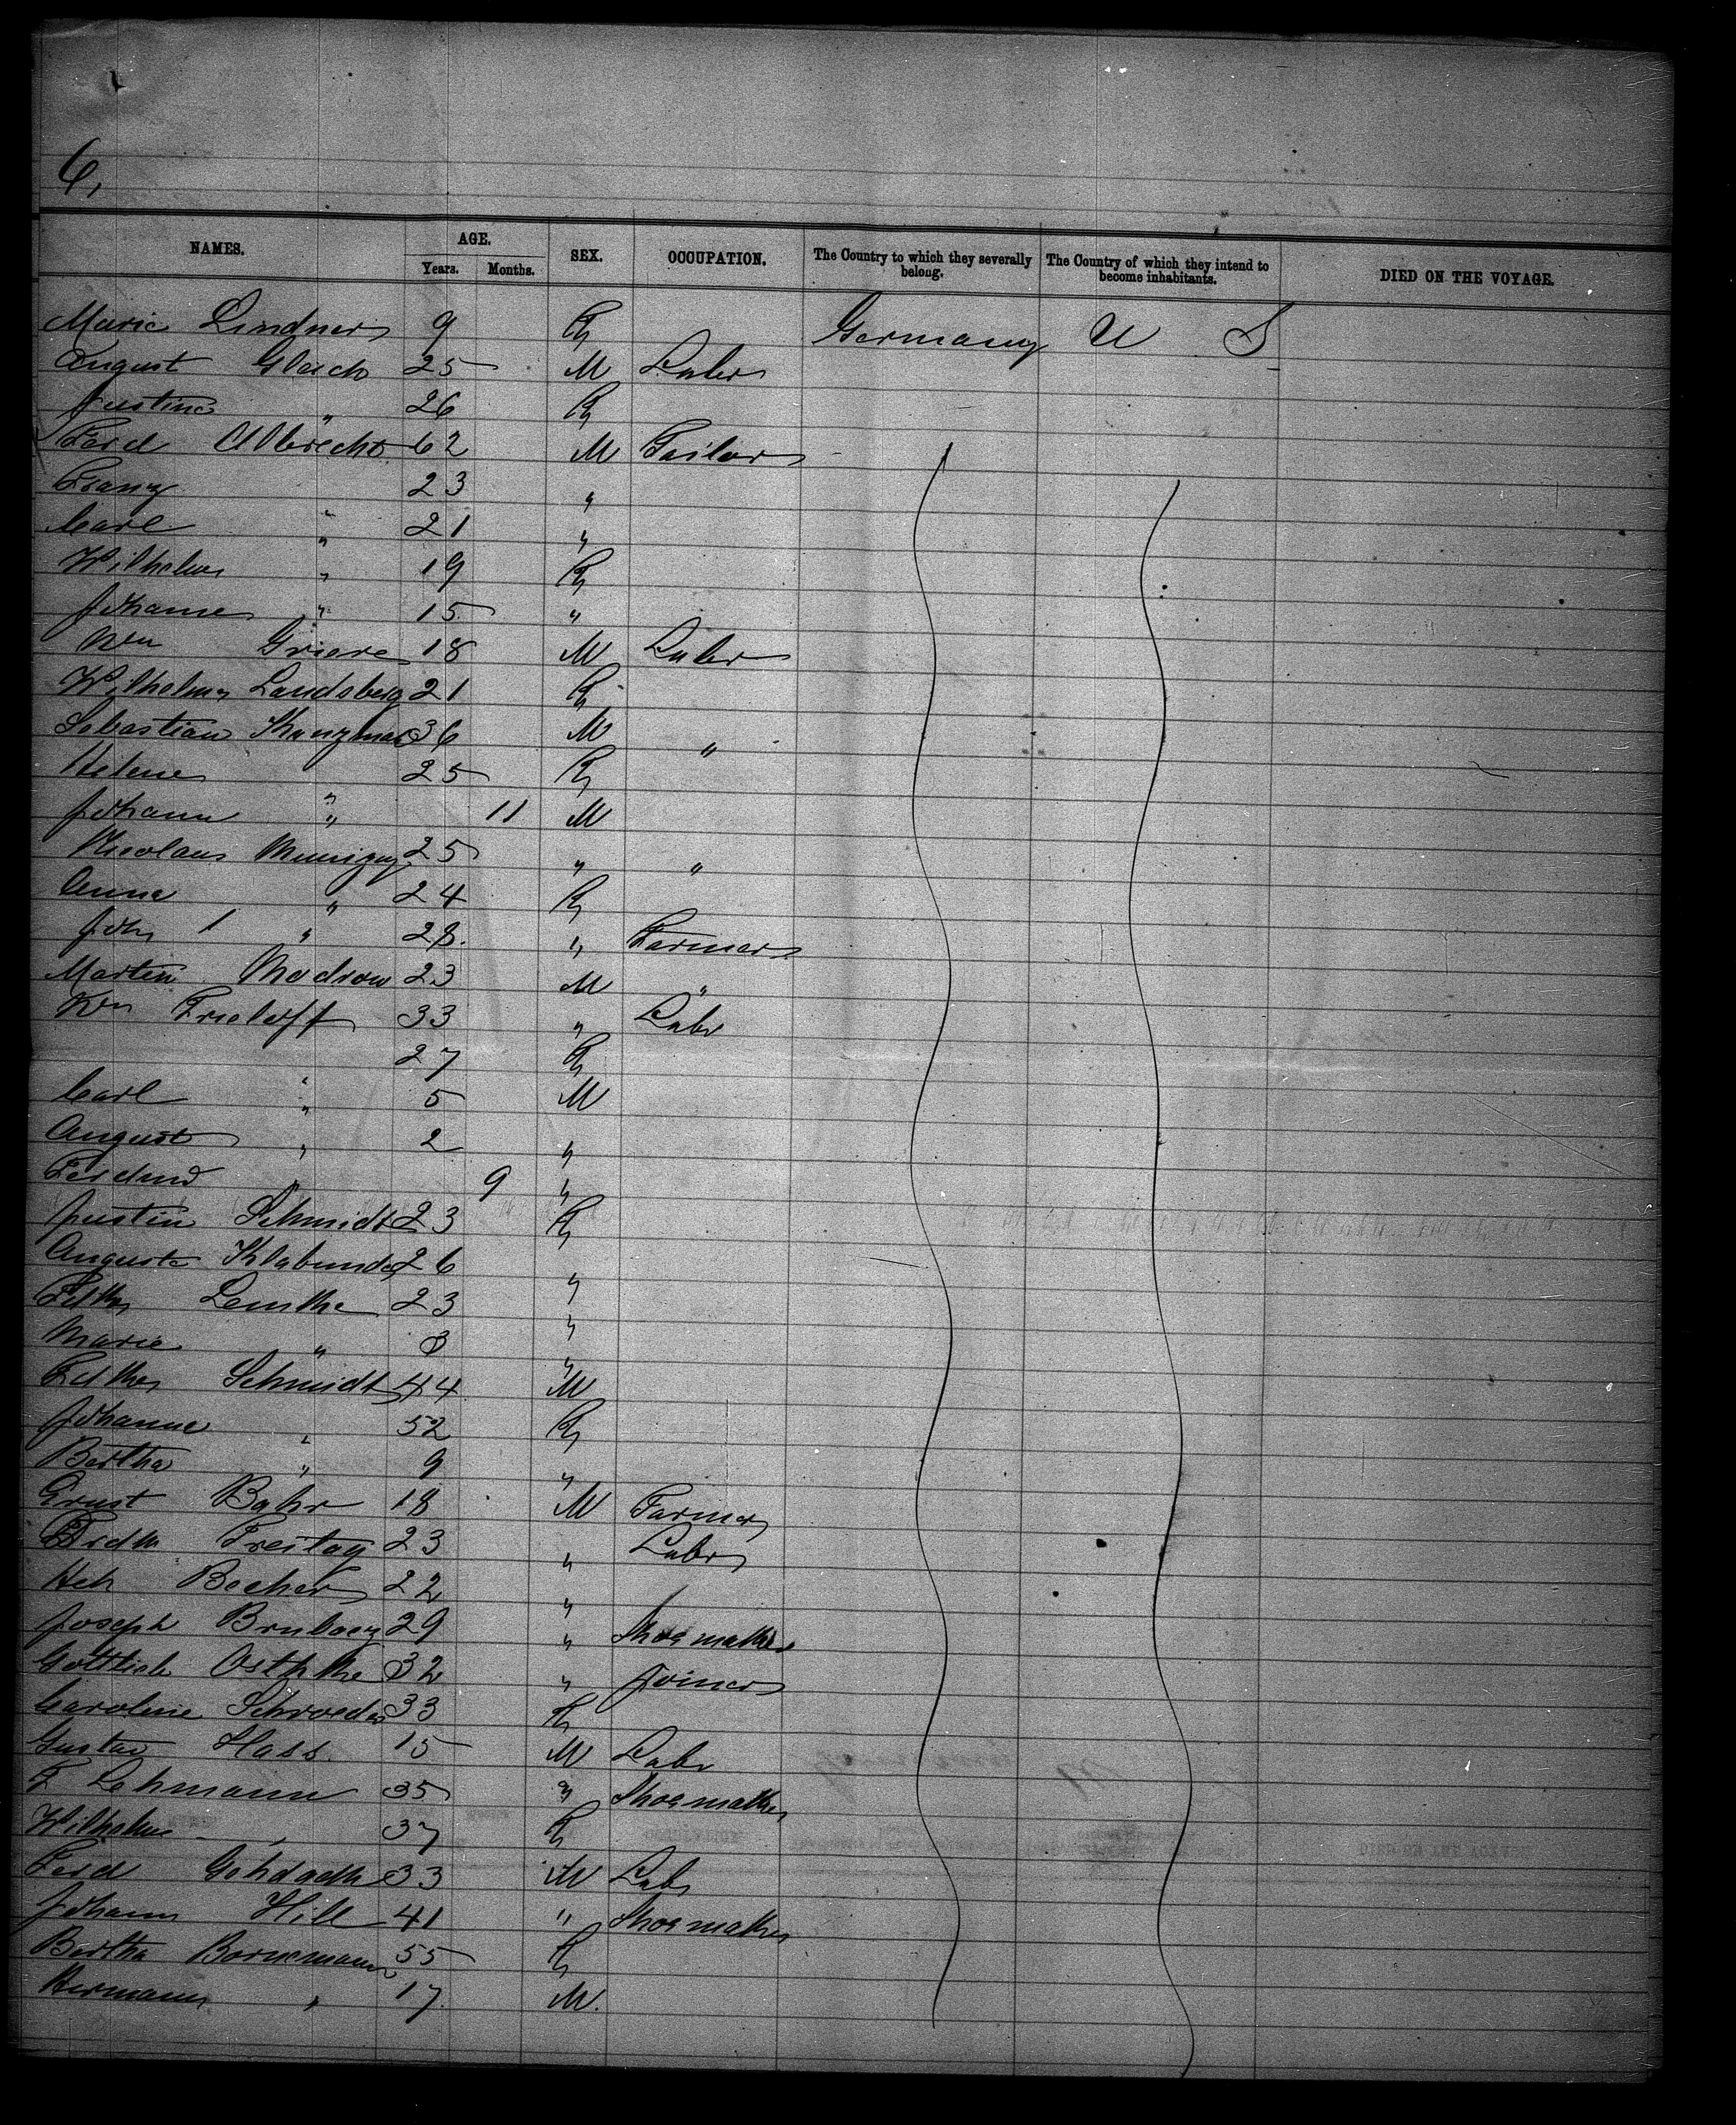 6,
NAMES. AGE. SEX. OCCUPATION. The Country to which they severally belong. The Country of which they intend to become inhabitants. DIED ON THE VOYAGE.
Years. Months.
Marie Lindner 9 F Germany U S
August 25 M Labr
Justine " 26 F
Ferd Albrecht 62 M Tailor
Franz " 23 "
Carl " 21 "
Wilhelm " 19 F
Johanne " 15 "
Wm 18 M Labr
Wilhelm Landsberg 21 F
Sebastian 36 M "
Helene " 25 F
Johann " 11 M
Nicolaus 25 " "
Anna " 24 F
John " 28 " Farmer
Martin Modrow 23 M "
Wm 33 " Labr
" 27 F
Carl " 5 M
August " 2 "
Ferdind " 9 "
Justin Schmidt 23 F
Auguste Klabunde 26 "
Lemke 23 "
Marie " 3 "
Schmidt 44 M
Johanne " 52 F
Bertha " 9 "
Ernst Bahr 18 M Farmer
Frdk Freitag 23 " Labr
Hch Becher 22 "
Joseph 29 " Shoemaker
Gottlieb 32 " Joiner
Caroline Schroeder 33 F
Gustav Hass 15 M Labr
F Lehmann 35 " Shoemaker
Wilhelm " 37 F
Ferd 33 M Labr
Johann Hill 41 " Shoemaker
Bertha Bornemann 55 F
Hermann " 17 M.